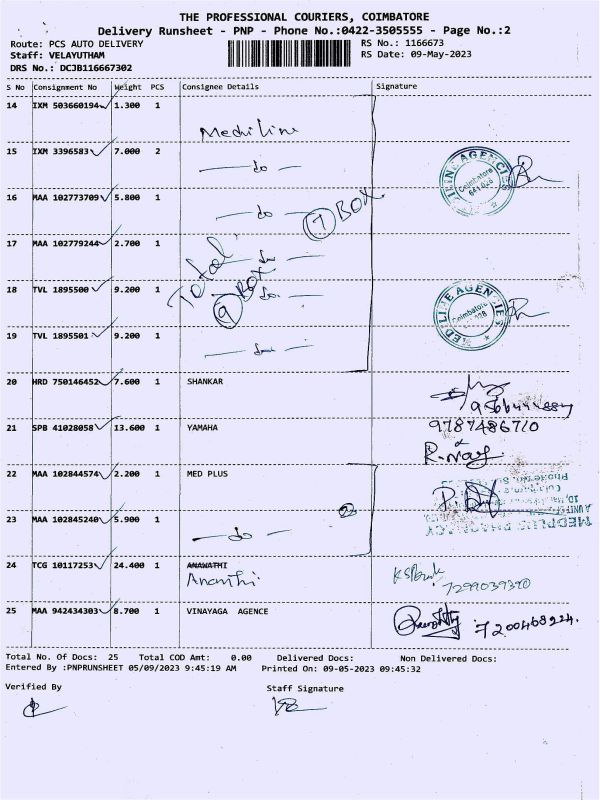 THE PROFESSIONAL COURIERS, COIMBATORE
Delivery Runsheet - PNP - Phone No.:0422-3505555 - Page No.:2
Route: PCS AUTO DELIVERY RS No.: 1166673
Staff: VELAYUTHAM RS Date: 09-May-2023
DRS No.: DCJB116667302
S No Consignment No Weight PCS Consignee Details Signature
14 IXM 503660194 1.300 1
Mediline
15 IXM 3396583 7.000 2
— do —
16 MAA 102773709 5.800 1
— do —
7 BOX
17 MAA 102779244 2.700 1
Total
— do —
18 TVL 1895500 9.200 1
9 BOX
— do —
MEDILINE AGENCIES
Coimbatore
19 TVL 1895501 9.200 1
20 HRD 750146452 7.600 1 SHANKAR
21 SPB 41028058 13.600 1 YAMAHA 9787486710
22 MAA 102844574 2.200 1 MED PLUS
23 MAA 102845240 5.900 1
2
— do —
MEDPLUS PHARMACY
24 TCG 10117253 24.400 1 ANAWATHI
Ananthi
7299039390
25 MAA 942434303 8.700 1 VINAYAGA AGENCE
7200468224.
Total No. Of Docs: 25 Total COD Amt: 0.00 Delivered Docs: Non Delivered Docs:
Entered By :PNPRUNSHEET 05/09/2023 9:45:19 AM Printed On: 09-05-2023 09:45:32
Verified By Staff Signature